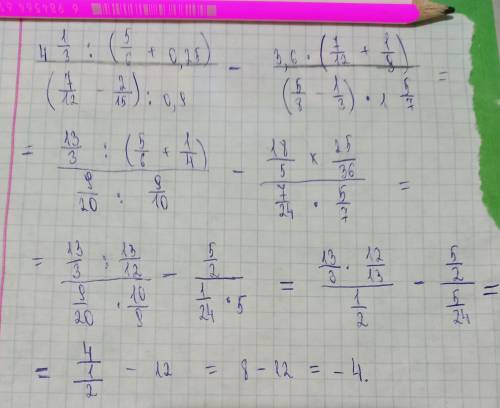 (4 1/3 : (5/6 + 0,25)) / ((7/12 - 2/15) : 0,9) - (3,6 · (7/12 + 1/9)) / ((5/8 - 1/3) · 1 5/7) =
= (13/3 : (5/6 + 1/4)) / (9/20 : 9/10) - (18/5 × 25/36) / (7/24 · 5/7) =
= (13/3 : 13/12) / (9/20 · 10/9) - (5/2) / (1/24 · 5) = (13/3 · 12/13) / (1/2) - (5/2) / (5/24) =
= 4 / (1/2) - 12 = 8 - 12 = - 4.